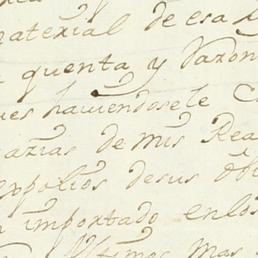 material de esa
quenta y Razon
ues haviendosele
azias de mis Rea
espolios de sus Obi
importado en los
Ultimos mas